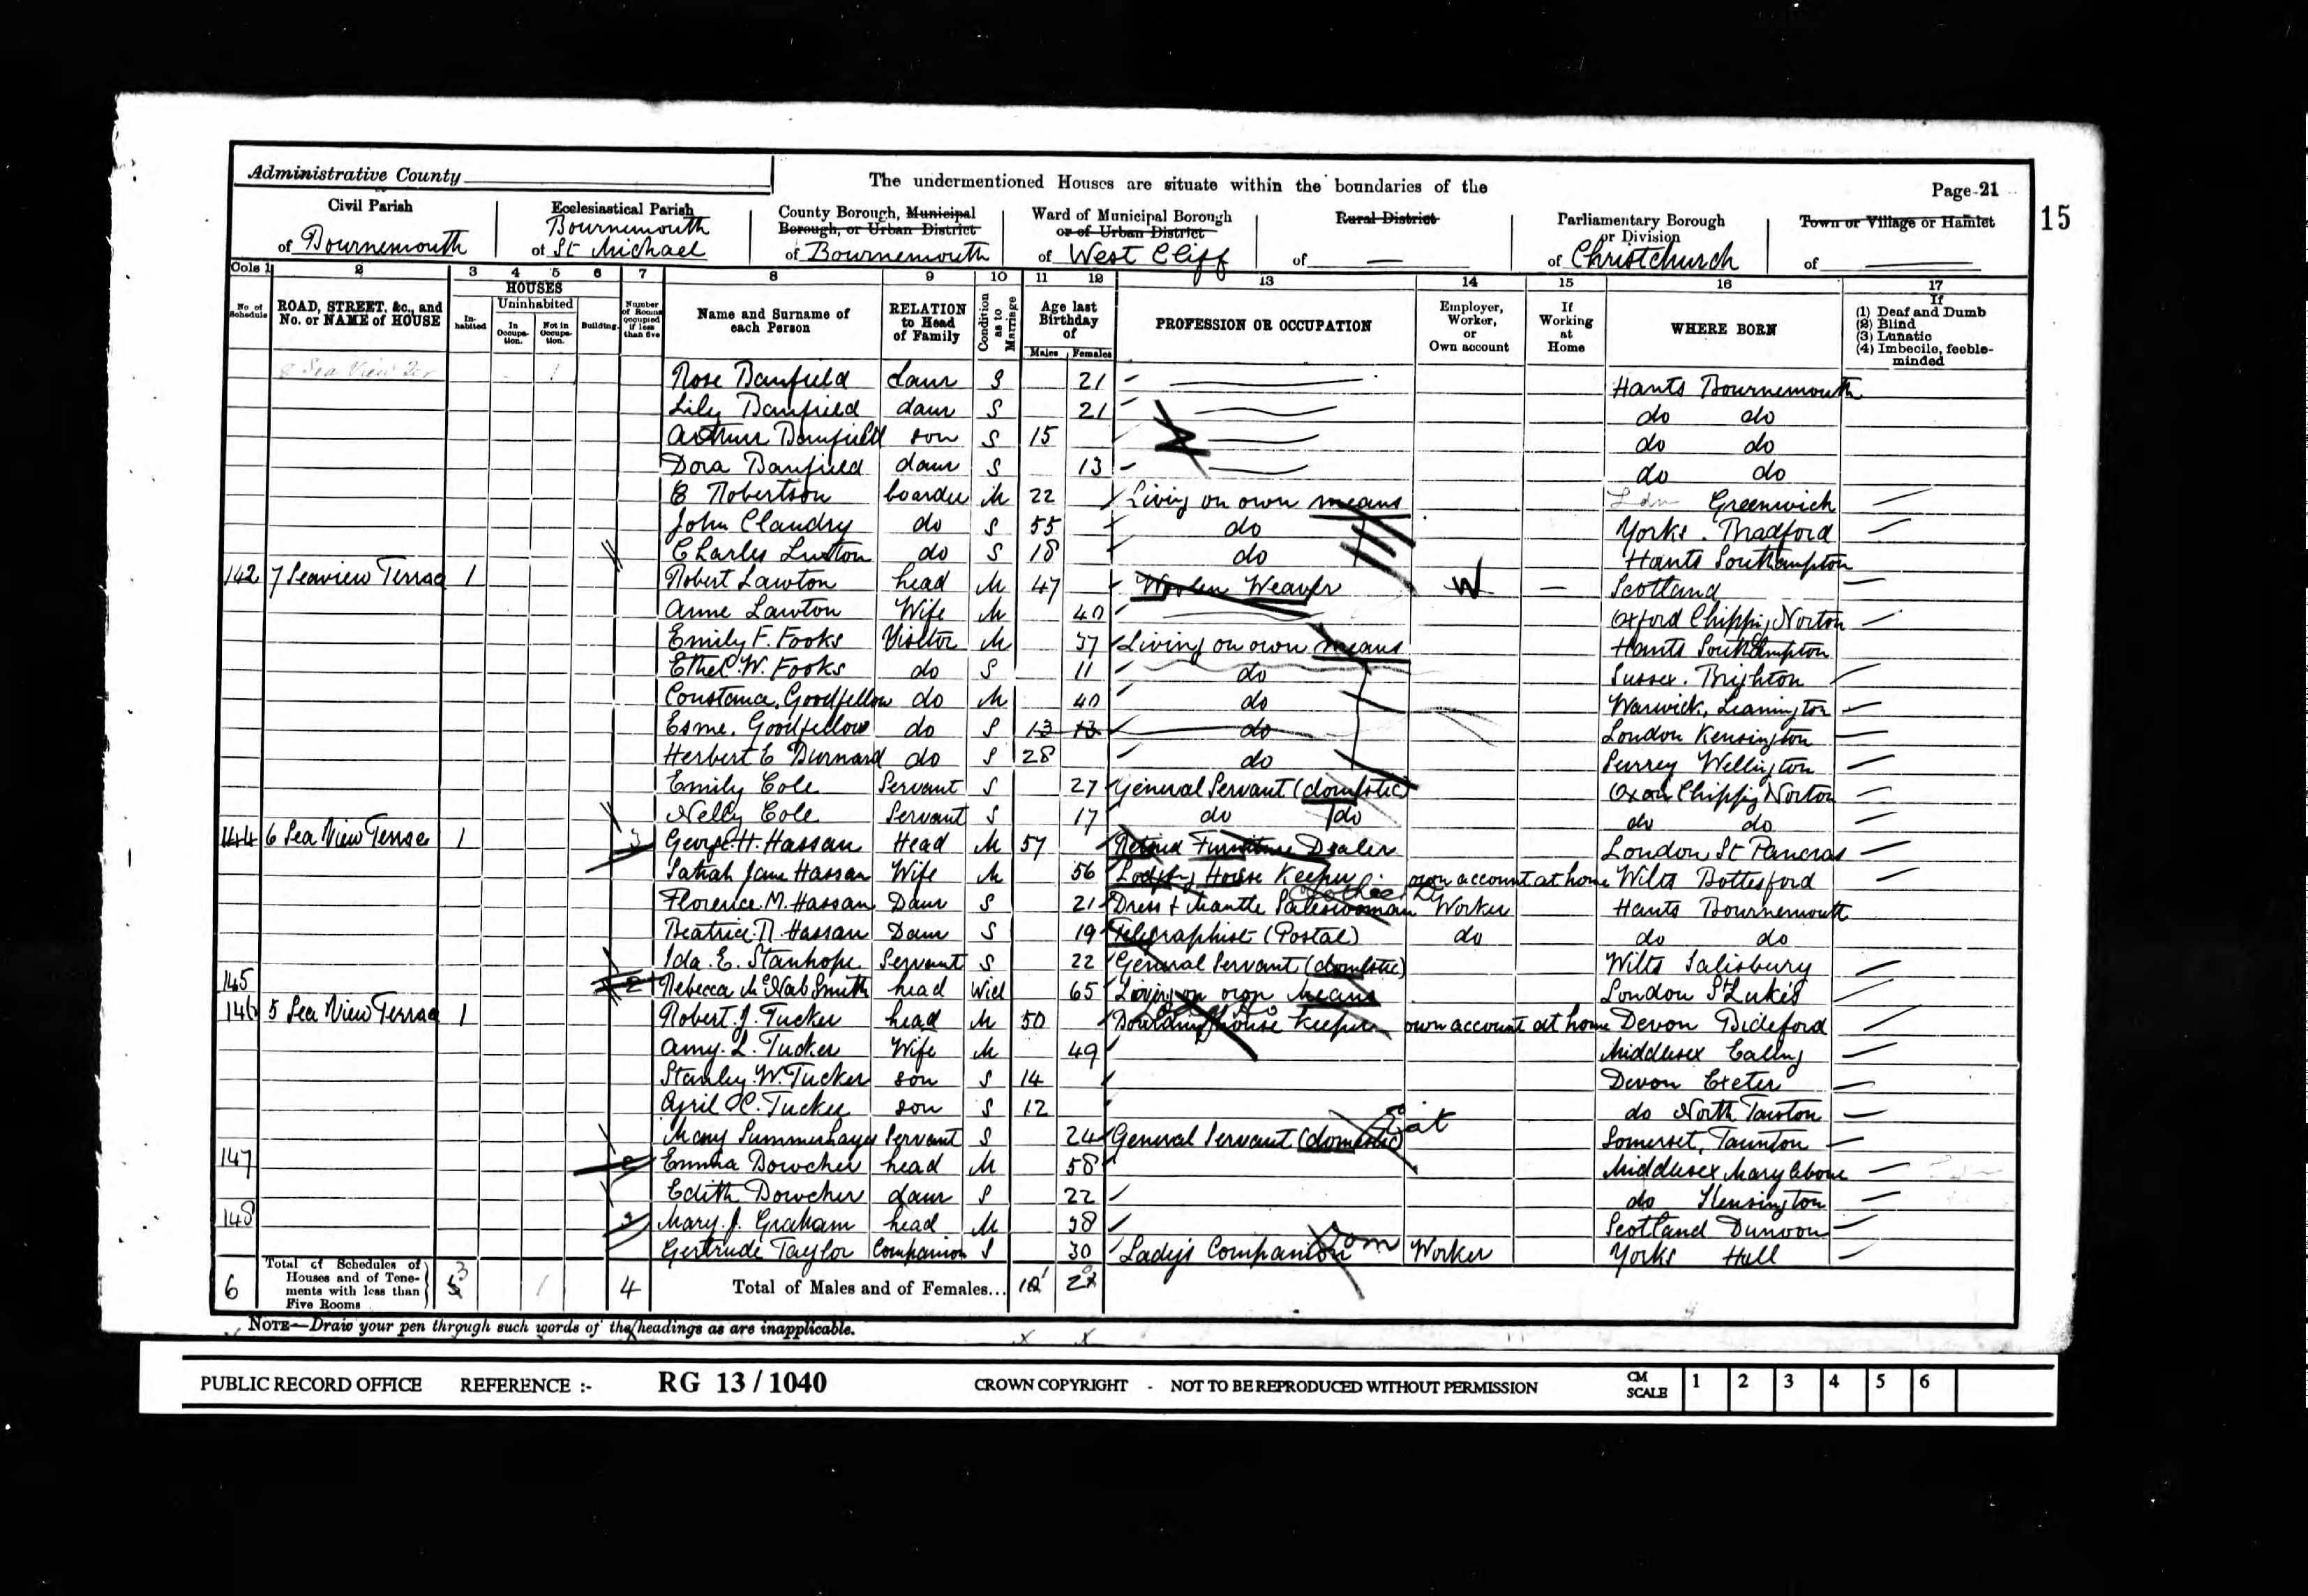 Administrative County
The undermentioned Houses are situate within the boundaries of the
Page 21
15
Civil Parish of Bournemouth
Ecclesiastical Parish of Bournemouth St Michael
County Borough, Municipal Borough, or Urban District of Bournemouth
Ward of Municipal Borough or of Urban District of West Cliff
Rural District of —
Parliamentary Borough or Division of Christchurch
Town or Village or Hamlet of
Cols 1 2 3 4 5 6 7 8 9 10 11 12 13 14 15 16 17
No. of Schedule
ROAD, STREET, &c., and No. or NAME of HOUSE
HOUSES
Inhabited
Uninhabited
In Occupation.
Not in Occupation.
Building.
Number of Rooms occupied if less than five
Name and Surname of each Person
RELATION to Head of Family
Condition as to Marriage
Age last Birthday of
Males Females
PROFESSION OR OCCUPATION
Employer, Worker, or Own account
If Working at Home
WHERE BORN
If (1) Deaf and Dumb (2) Blind (3) Lunatic (4) Imbecile, feeble-minded
8 Sea View Ter 1 Rose Banfield daur S 21 Hants Bournemouth
Lily Banfield daur S 21 do do
Arthur Banfield son S 15 do do
Dora Banfield daur S 13 do do
E Robertson boarder M 22 Living on own means Ldn Greenwich
John Claudry do S 55 do Yorks. Bradford
Charles Luxton do S 18 do Hants Southampton
142 7 Seaview Terrac 1 Robert Lawton head M 47 Woolen Weaver W — Scotland
Anne Lawton Wife M 40 Oxford Chipping Norton
Emily F. Fooks Visitor M 37 Living on own means Hants Southampton
Ethel. W. Fooks do S 11 do Sussex. Brighton
Constance. Goodfellow do M 40 do Warwick, Leamington
Esme. Goodfellow do S 13 13 do London Kensington
Herbert E Burnard do S 28 do Surrey Wellington
Emily Cole Servant S 27 General Servant (domestic) Oxon Chipping Norton
Nelly Cole Servant S 17 do do do do
144 6 Sea View Terrac 1 3 George. H. Hassan Head M 57 Retired Furniture Dealer London, St Pancras
Sarah Jane Hassan Wife M 56 Lodging House Keeper own account at home Wilts Bottesford
Florence. M. Hassan Daur S 21 Dress & Mantle Saleswoman Worker Hants Bournemouth
Beatrice. R. Hassan Daur S 19 Telegraphist (Postal) do do do
Ida. E. Stanhope Servant S 22 General Servant (domestic) Wilts Salisbury
145 2 Rebecca McNab Smith head Wid 65 Living on own means London St Luke's
146 5 Sea View Terrac 1 Robert. J. Tucker head M 50 Boarding house Keeper own account at home Devon Bideford
Amy. L. Tucker Wife M 49 Middlesex Ealing
Stanley. W. Tucker son S 14 Devon Exeter
C. Tucker son S 12 do North Tawton
Mary Summerhayes Servant S 24 General Servant (domestic) Somerset, Taunton
147 2 Emma Dowcher head M 58 Middlesex Marylebone
Edith Dowcher daur S 22 do Kensington
148 3 Mary. J. Graham head M 38 Scotland Dunoon
Gertrude Taylor Companion S 30 Lady's Companion Dom Worker Yorks Hull
6 Total of Schedules of Houses and of Tenements with less than Five Rooms 3 1 4 Total of Males and of Females...
NOTE—Draw your pen through such words of the headings as are inapplicable.
PUBLIC RECORD OFFICE REFERENCE :- RG 13 / 1040 CROWN COPYRIGHT - NOT TO BE REPRODUCED WITHOUT PERMISSION CM SCALE 1 2 3 4 5 6